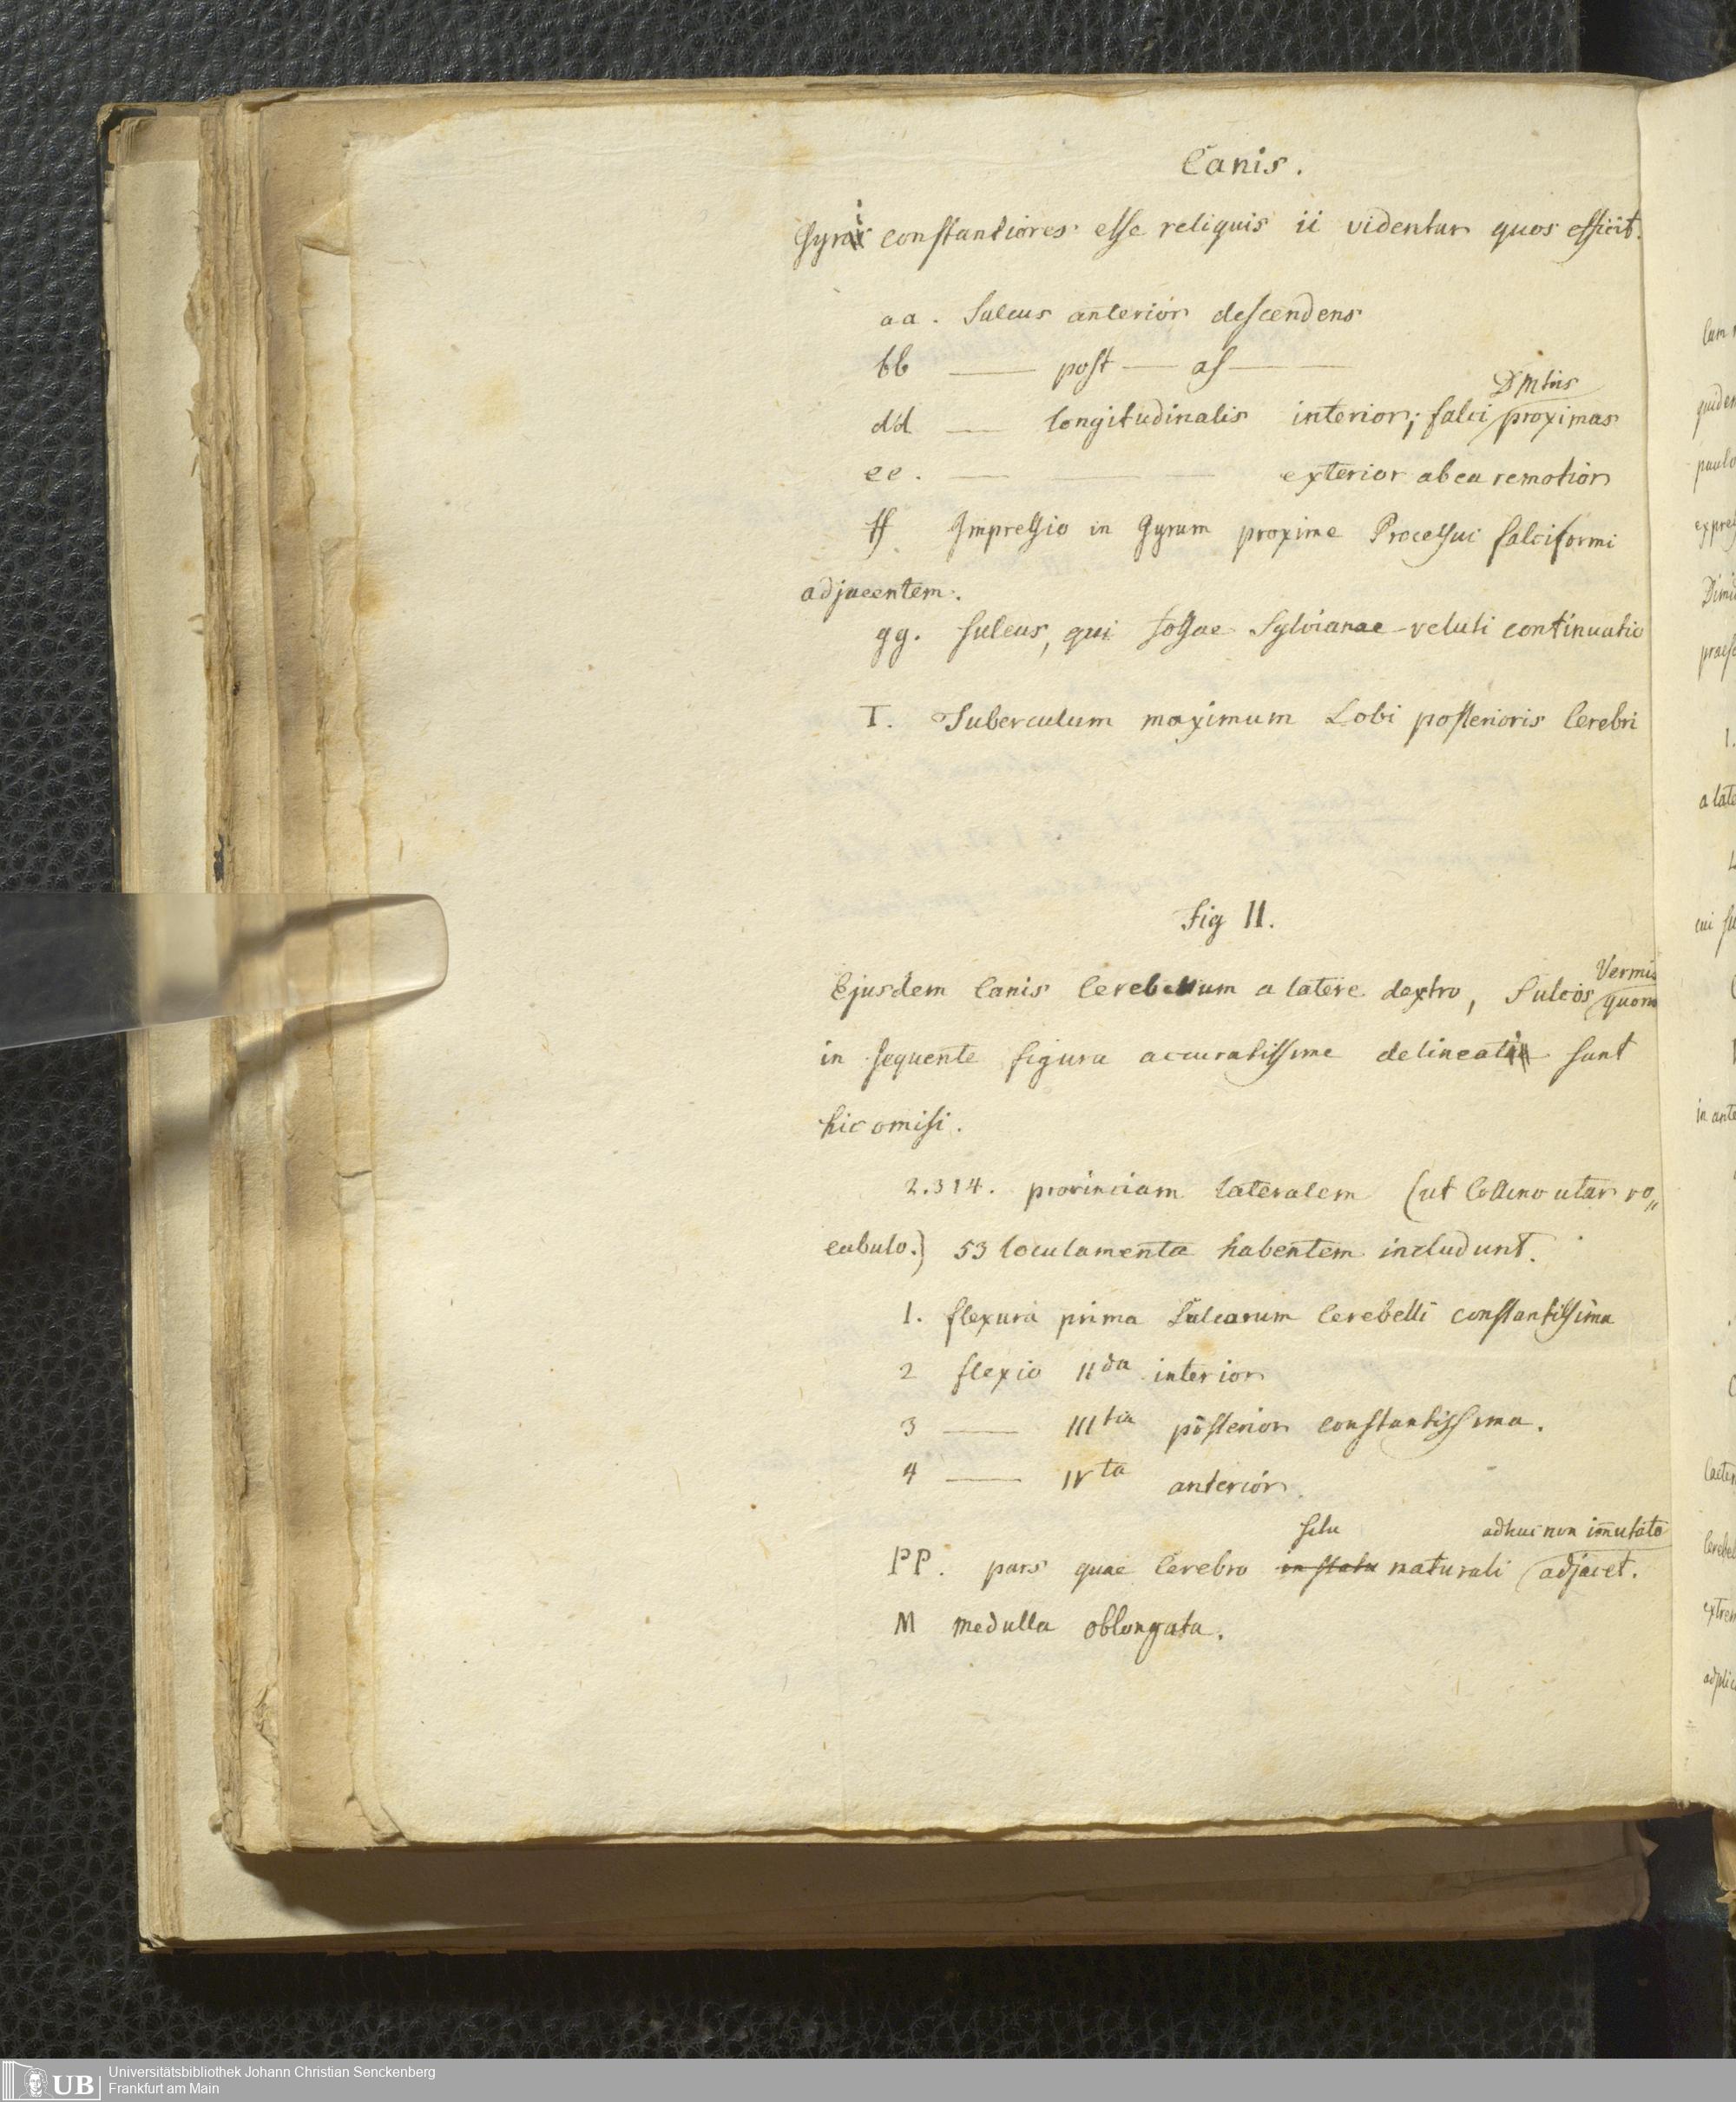 Canis.
Gyri constantiores esse reliquis ii videntur quos efficit.
aa. Sulcus anterior descendens
bb —— post — as — —
D Mtris
dd — longitudinalis interior; falci proximas
ee. — —— — exterior ab ea remotior
ff. Impressio in Gyrum proxime Processui falciformi
adjacentem.
gg. sulcus, qui fossae Sylvianae veluti continuatio
T. Tuberculum maximum Lobi posterioris Cerebri
Fig II.
Vermis
Ejusdem Canis Cerebellum a latere dextro, Sulcos quom
in sequente figura accuratissime delineati sunt
hic omisi.
2.314. provinciam lateralem (ut Collino utar vo„
cabulo.) 53 loculamenta habentem includunt.
1. flexura prima Sulcorum Cerebelli constantissima
2 flexio IIda interior
3 —— IIItia posterior constantissima.
4 —— IVta anterior.
situ adhuc non im̄utato
PP. pars quae Cerebro in statu naturali adjacet.
M medulla oblongata.
lum
quiden
paulo
expres
Dimi
praese
1.
a late
cui su
in ante
Caeter
Cerebel
extrem
adplic
UB
Universitätsbibliothek Johann Christian Senckenberg
Frankfurt am Main